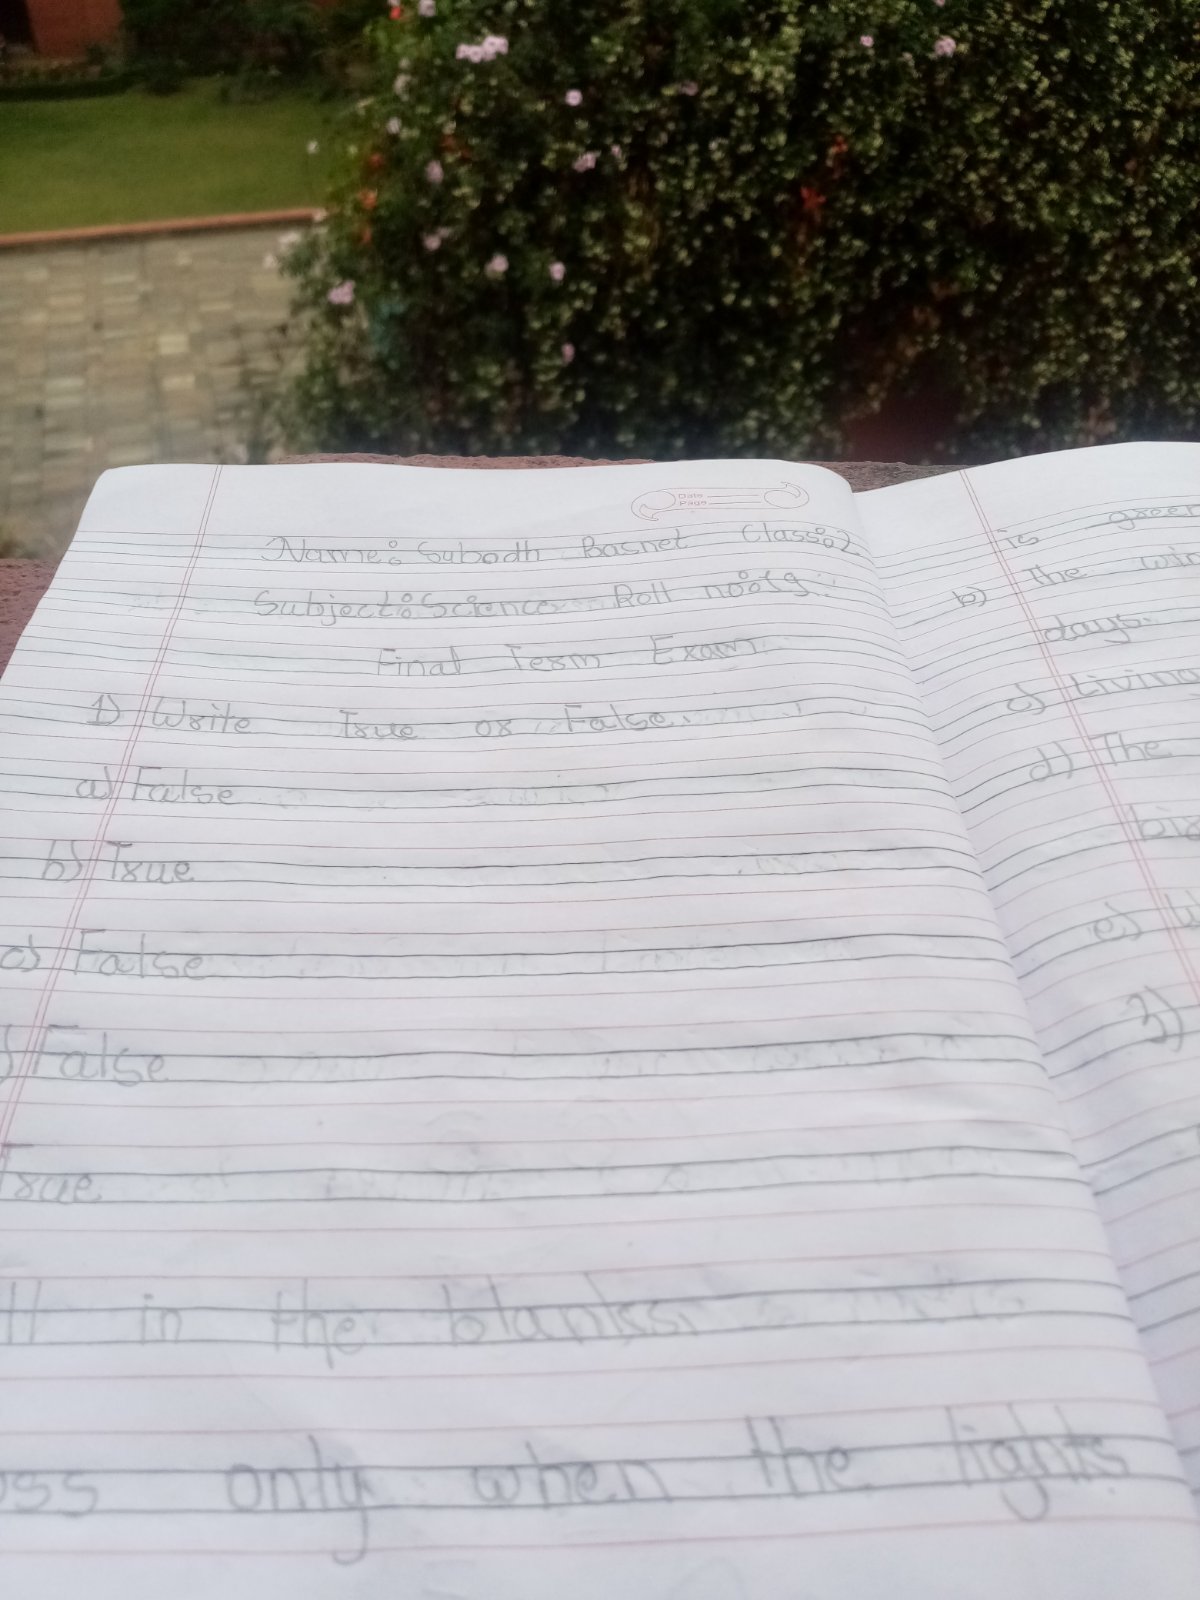 Date
Page
Name: Subodh Basnet Class:2
Subject:Science Roll no:19
Final Term Exam
1) Write True or False.
a) False
b) True
c) False
) False
True
ll in the blanks.
oss only when the lights
is green
b) The win
days.
c) Living
d) The
bir
e) W
3)